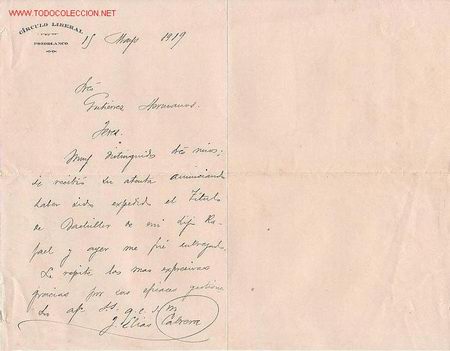 www.TODOCOLECCION.NET
CÍRCULO LIBERAL
POZOBLANCO
15 Mayo 1919
Sres
Gutiérrez Hermanos.
Jerez
Muy distinguidos Sres mios:
se recibió su atenta anunciando
haber sido expedido el Titulo
de Bachiller de mi hijo Ra-
fael y ayer me fué entregado.
Le repito las mas expresivas
gracias por sus eficaces gestiones
Su afº S.S. q.e.s.m
J. Elias Cabrera